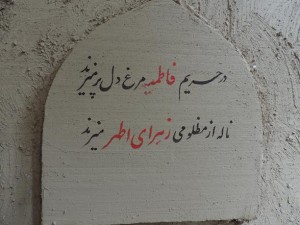 در حریم فاطمیه مرغ دل پر میزند
ناله از مظلومی زهرای اطهر میزند